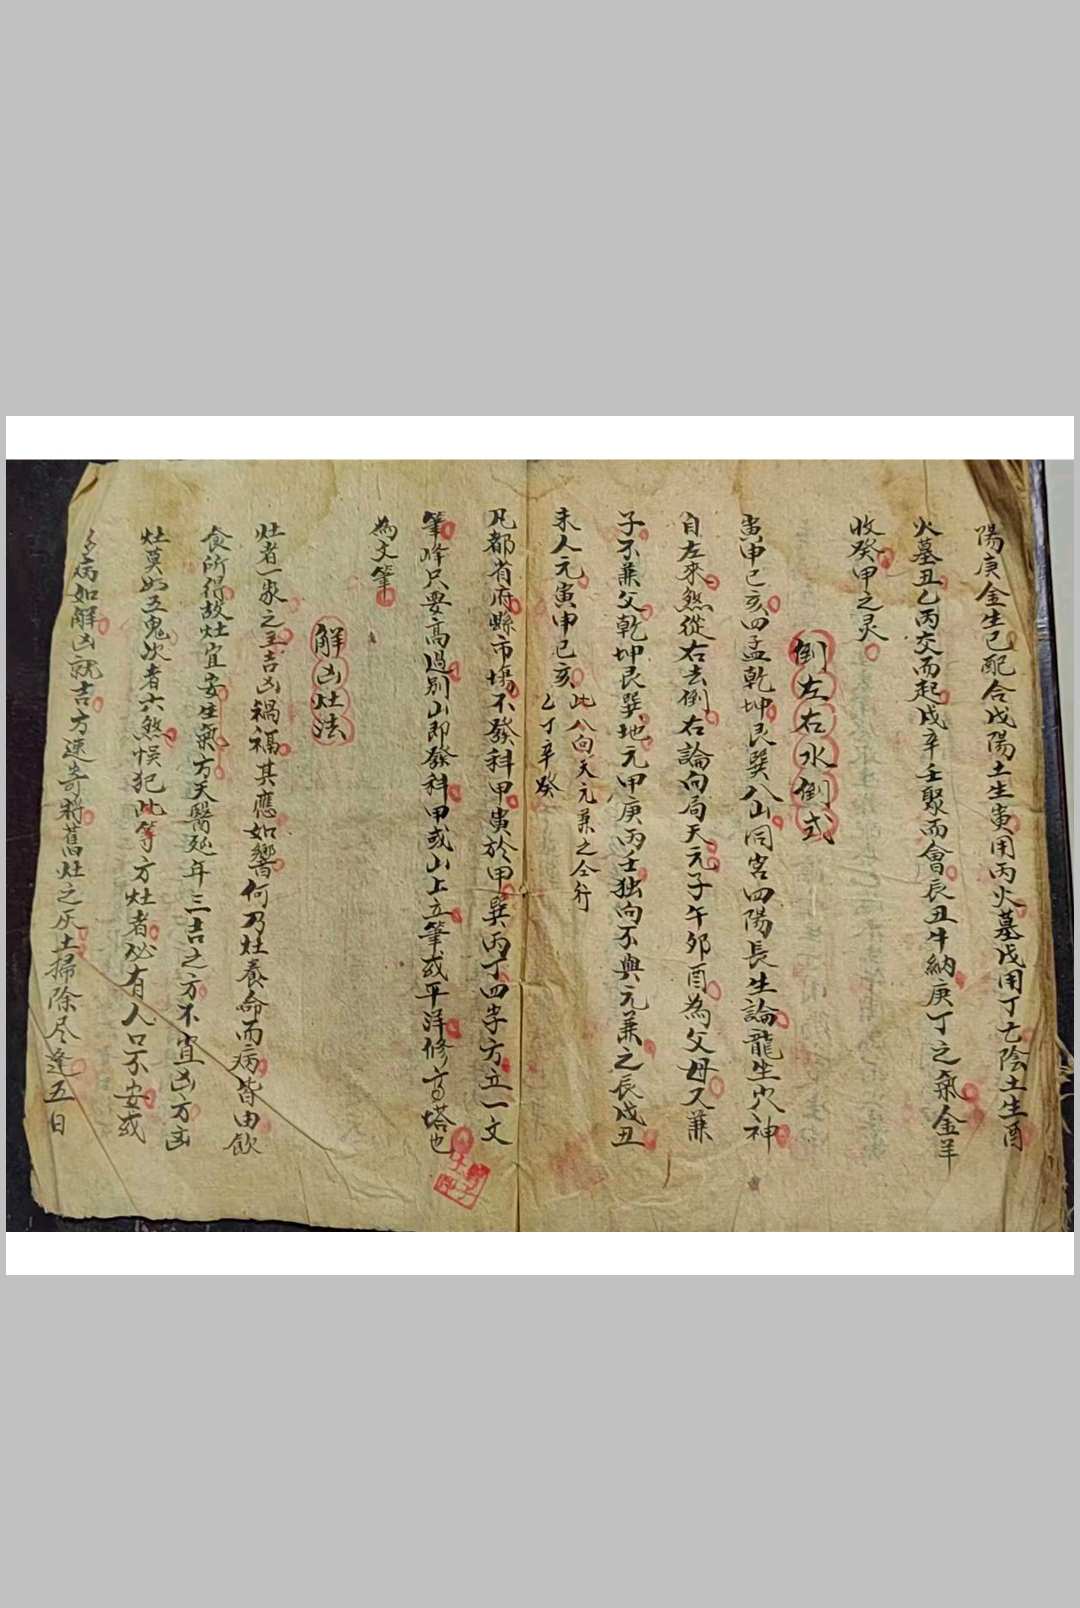 陽庚金生巳配合戌陽土生寅用丙火墓戌用丁亡陰土生酉
火墓丑乙丙交而起戌辛壬聚而會辰丑牛納庚丁之氣金羊
收癸甲之灵
倒左右水倒式
寅申巳亥四孟乾坤艮巽八山同宮四陽長生論龍生穴神
自左來煞從右去倒右論向局天元子午卯酉為父母又兼
子不兼父乾坤艮巽地元甲庚丙壬独向不與元兼之辰戌丑
未人元寅申巳亥
此八向天元兼之仝行
乙丁辛癸
凡都省府縣市場不發科甲寅於甲巽丙丁四字方立一文
筆峰只要高過別山即發科甲或山上立筆或平洋修高塔也
為文筆
解凶灶法
灶者一家之主吉凶禍福其應如響何乃灶養命而病皆由飲
食所得故灶宜安生氣方天醫延年三吉之方不宜凶方凶
灶莫如五鬼次者六煞悮犯此等方灶者必有人口不安或
多病如解凶就吉方速寄將舊灶之灰土掃除尽逢五日